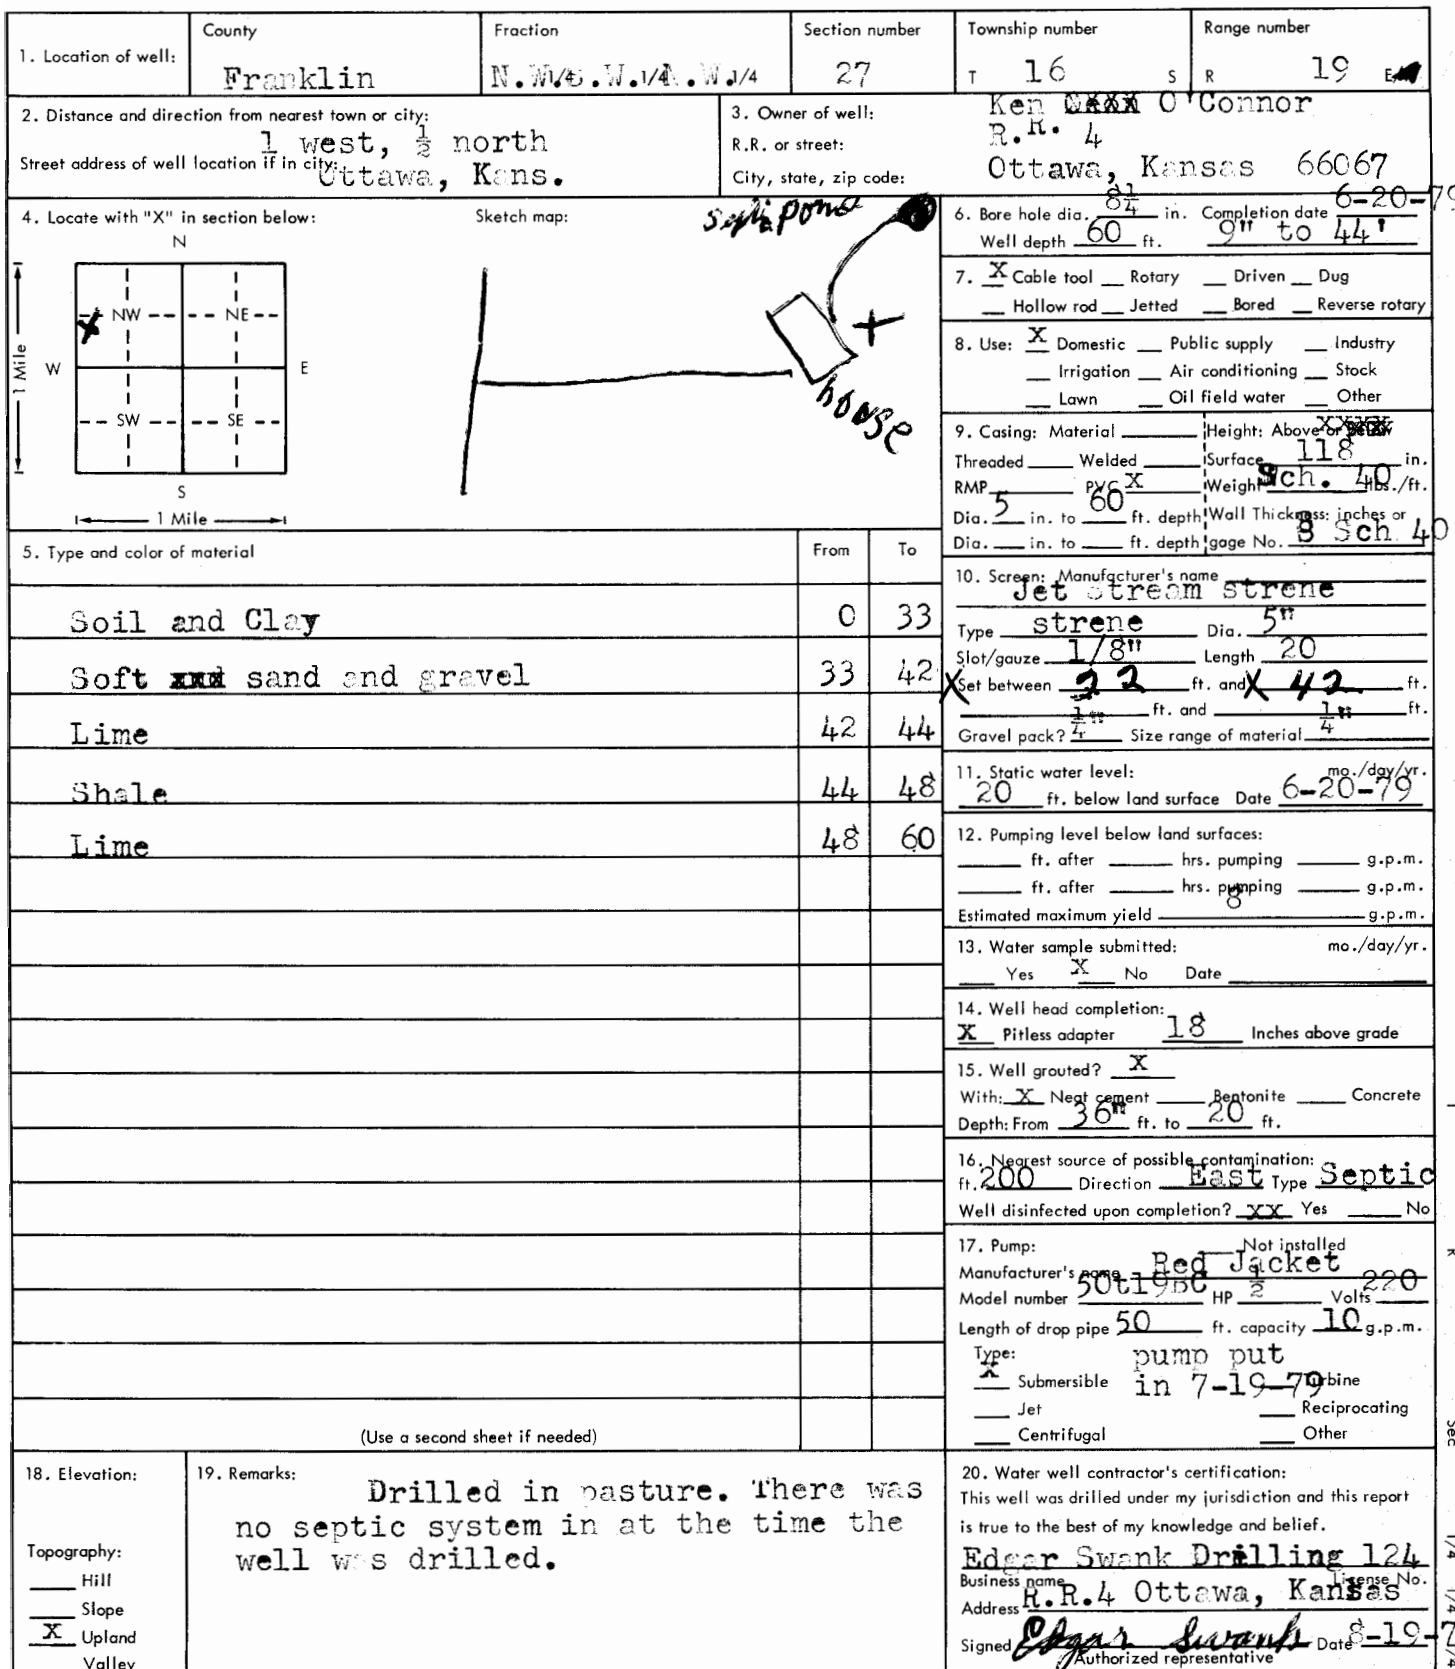 County Fraction Section number Township number Range number
1. Location of well: Franklin N.W 1/4 S.W. 1/4 N.W. 1/4 27 T 16 S R 19 E
2. Distance and direction from nearest town or city:
1 west, ½ north
Street address of well location if in city:
Ottawa, Kans.
3. Owner of well: Ken O'Connor
R.R. or street: R.R. 4
City, state, zip code: Ottawa, Kansas 66067
4. Locate with "X" in section below: Sketch map:
N
NW NE
W E
SW SE
S
1 Mile
1 Mile
pond
house
X
5. Type and color of material From To
Soil and Clay 0 33
Soft xxx sand and gravel 33 42
Lime 42 44
Shale 44 48
Lime 48 60
(Use a second sheet if needed)
6. Bore hole dia. 8¼ in. Completion date 6-20-79
Well depth 60 ft. 9" to 44'
7. X Cable tool Rotary Driven Dug
Hollow rod Jetted Bored Reverse rotary
8. Use: X Domestic Public supply Industry
Irrigation Air conditioning Stock
Lawn Oil field water Other
9. Casing: Material Height: Above or below
Threaded Welded Surface 118 in.
RMP PVC X Weight Sch. 40 lbs./ft.
Dia. 5 in. to 60 ft. depth Wall Thickness: inches or
Dia. in. to ft. depth gage No. Sch 40
10. Screen: Manufacturer's name
Jet stream strene
Type strene Dia. 5"
Slot/gauze 1/8" Length 20
X Set between 22 ft. and X 42 ft.
ft. and ft.
Gravel pack? ¼" Size range of material ¼"
11. Static water level: mo./day/yr.
20 ft. below land surface Date 6-20-79
12. Pumping level below land surfaces:
ft. after hrs. pumping g.p.m.
ft. after hrs. pumping g.p.m.
Estimated maximum yield 8 g.p.m.
13. Water sample submitted: mo./day/yr.
Yes X No Date
14. Well head completion:
X Pitless adapter 18 Inches above grade
15. Well grouted? X
With: X Neat cement Bentonite Concrete
Depth: From 36" ft. to 20 ft.
16. Nearest source of possible contamination:
ft. 200 Direction East Type Septic
Well disinfected upon completion? XX Yes No
17. Pump: Not installed
Manufacturer's name Red Jacket
Model number HP ½ Volts 220
Length of drop pipe 50 ft. capacity 10 g.p.m.
Type: pump put
X Submersible in 7-19-79 Turbine
Jet Reciprocating
Centrifugal Other
18. Elevation:
Topography:
Hill
Slope
X Upland
Valley
19. Remarks: Drilled in pasture. There was
no septic system in at the time the
well was drilled.
20. Water well contractor's certification:
This well was drilled under my jurisdiction and this report
is true to the best of my knowledge and belief.
Edgar Swank Drilling 124
Business name License No.
Address R.R.4 Ottawa, Kansas
Signed Edgar Swank Date 8-19-7
Authorized representative